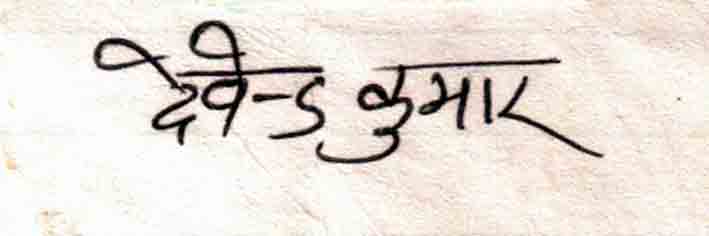 देवेन्द्र कुमार